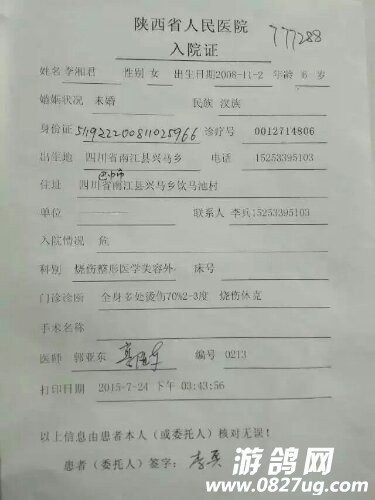 陕西省人民医院
777288
入院证
姓名 李湘君 性别 女 出生日期 2008-11-2 年龄 6 岁
婚姻状况 未婚 民族 汉族
身份证 诊疗号 0012714806
出生地 四川省南江县兴马乡 电话 15253395103
巴中市
住址 四川省南江县兴马乡饮马池村
单位 联系人 李兵15253395103
入院情况 危
科别 烧伤整形医学美容外 床号
门诊诊断 全身多处烫伤70%2-3度 烧伤休克
手术名称
医师 郭亚东 编号 0213
打印日期 2015-7-24 下午 03:43:56
以上信息由患者本人(或委托人)核对无误!
患者(委托人)签字:
游鸽网
www.0827ug.com